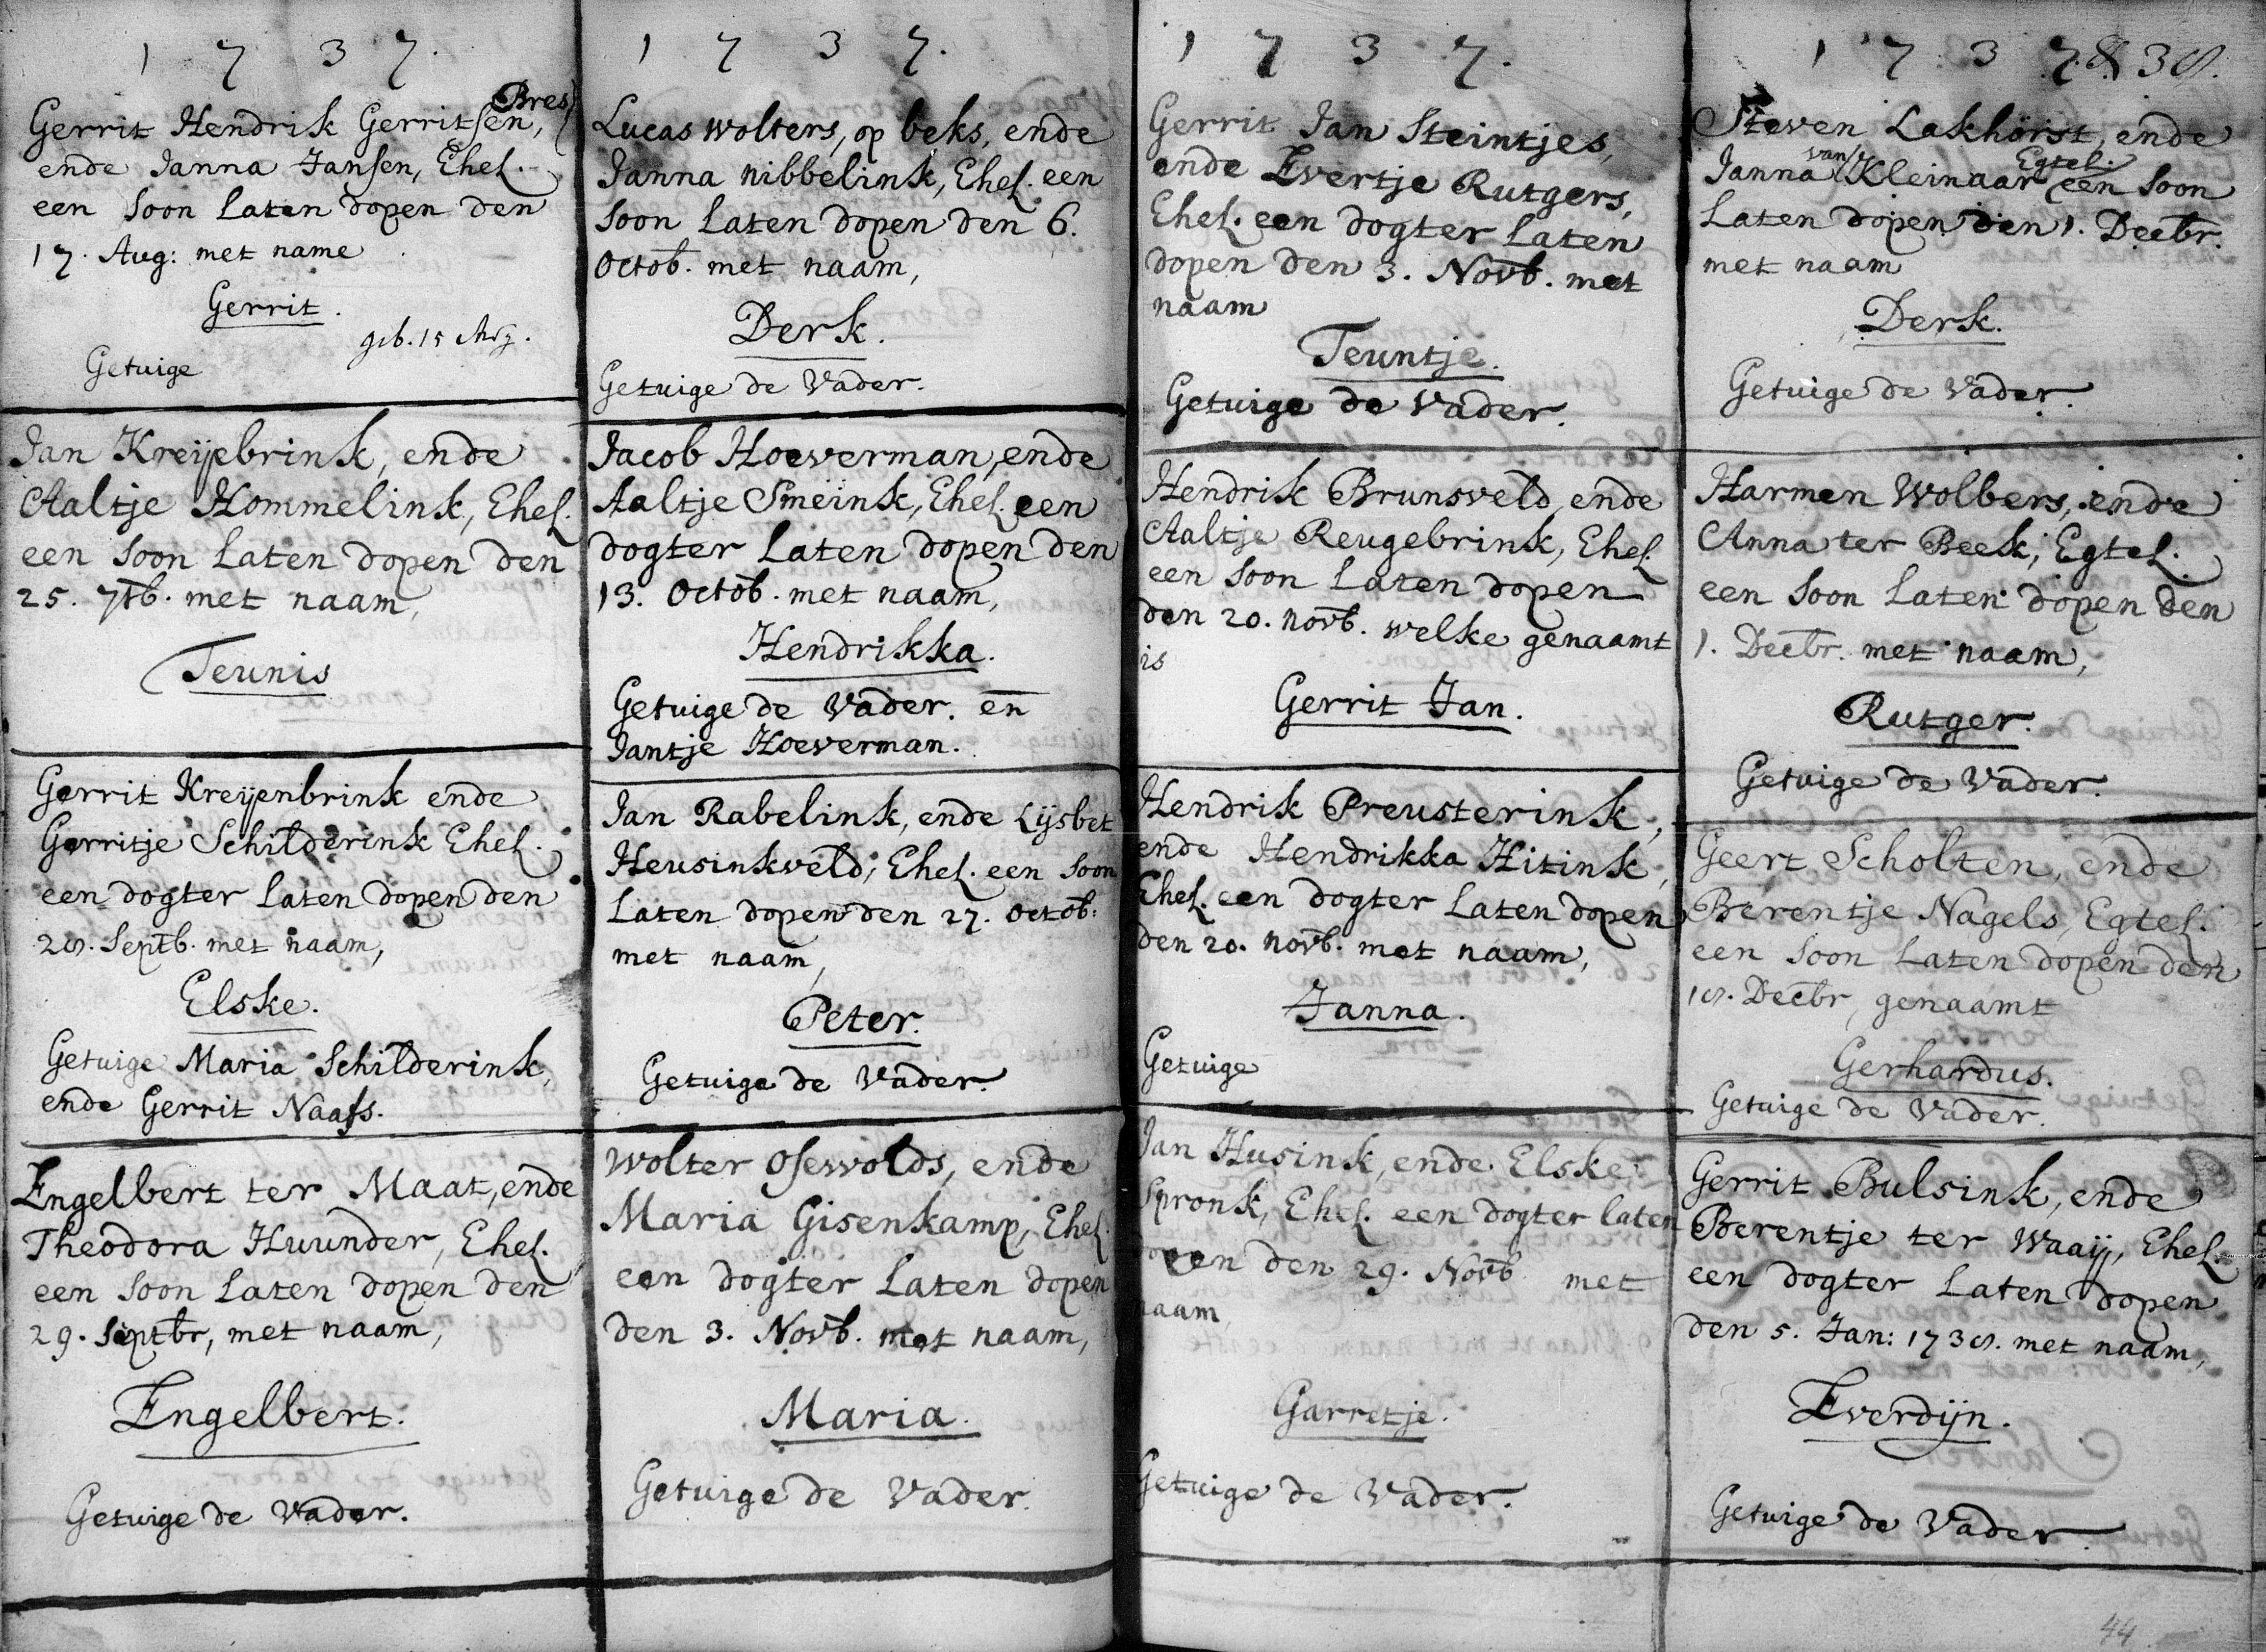 1 7 3 7.
Bres
Gerrit Hendrik Gerritsen,
ende Janna Jansen, Ehel.
een soon laten dopen den
17. Aug: met name
Gerrit.
geb. 15 Aug.
Getuige
Jan Kreijebrink, ende
Aaltje Hommelink, Ehel.
een soon laten dopen den
25. 7tb. met naam,
Teunis
Gerrit Kreijenbrink ende
Gerritje Schilderink Ehel.
een dogter laten dopen den
28. Septb. met naam,
Elske.
Getuige Maria Schilderink,
ende Gerrit Naafs.
Engelbert ter Maat, ende
Theodora Huunder, Ehel.
een soon laten dopen den
29. Septbr, met naam,
Engelbert.
Getuige de Vader.
1 7 3 7.
Lucas Wolters, op beks, ende
Janna Nibbelink, Ehel. een
soon laten dopen den 6.
Octob. met naam,
Derk.
Getuige de Vader.
Jacob Hoeverman, ende
Aaltje Smeink, Ehel. een
dogter laten dopen den
13. Octob. met naam,
Hendrikka.
Getuige de Vader. en
Jantje Hoeverman.
Jan Rabelink, ende Lijsbet
Heusinkveld, Ehel. een soon
laten dopen den 27. Octob:
met naam,
Peter.
Getuige de Vader.
Wolter Osewolds, ende
Maria Gisenkamp, Ehel.
een dogter laten dopen
den 3. Novb. met naam,
Maria.
Getuige de Vader.
1 7 3 7.
Gerrit Jan Steintjes,
ende Evertje Rutgers,
Ehel. een dogter laten
dopen den 3. Novb. met
naam
Teuntje.
Getuige de Vader.
Hendrik Brunsveld, ende
Aaltje Reugebrink, Ehel.
een soon laten dopen
den 20. novb. welke genaamt
is
Gerrit Jan.
Hendrik Preusterink,
ende Hendrikka Hitink,
Ehel. een dogter laten dopen
den 20. novb. met naam,
Janna.
Getuige
Jan Husink, ende Elske
Spronk, Ehel. een dogter laten
dopen den 29. Novb met
naam,
Garretje.
Getuige de Vader.
1 7 3 7. & 38.
Steven Lakhorst, ende
van Egtel.
Janna Kleinaar een soon
laten dopen den 1. Decbr.
met naam
Derk.
Getuige de Vader.
Harmen Wolbers, ende
Anna ter Beek, Egtel.
een soon laten dopen den
1. Decbr. met naam,
Rutger.
Getuige de Vader.
Geert Scholten, ende
Berentje Nagels, Egtel.
een soon laten dopen den
18. Decbr, genaamt
Gerhardus.
Getuige de Vader.
Gerrit Bulsink, ende
Berentje ter Waaij, Ehel.
een dogter laten dopen
den 5. Jan: 1738. met naam,
Everdijn.
Getuige de Vader.
44